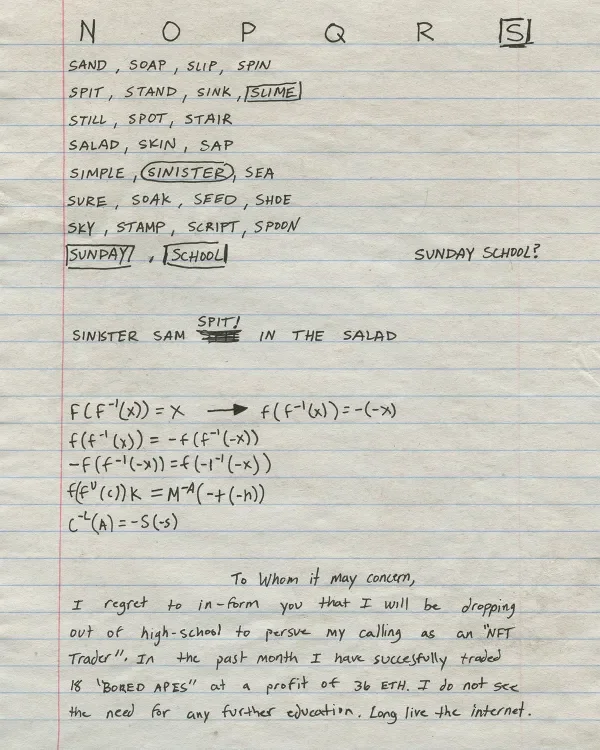 N O P Q R S
SAND, SOAP, SLIP, SPIN
SPIT, STAND, SINK, SLIME
STILL, SPOT, STAIR
SALAD, SKIN, SAP
SIMPLE, SINISTER, SEA
SURE, SOAK, SEED, SHOE
SKY, STAMP, SCRIPT, SPOON
SUNDAY, SCHOOL SUNDAY SCHOOL?
SPIT!
SINISTER SAM IN THE SALAD
F(F⁻¹(x)) = X → f(f⁻¹(x)) = -(-x)
f(f⁻¹(x)) = -f(f⁻¹(-x))
-F(f⁻¹(-x)) = f(-1⁻¹(-x))
f(fᵁ(c))K = M⁻ᴬ(-t(-h))
C⁻ᴸ(A) = -S(-s)
To Whom it may concern,
I regret to in-form you that I will be dropping
out of high-school to persue my calling as an "NFT
Trader". In the past month I have succesfully traded
18 "BORED APES" at a profit of 36 ETH. I do not see
the need for any further education. Long live the internet.